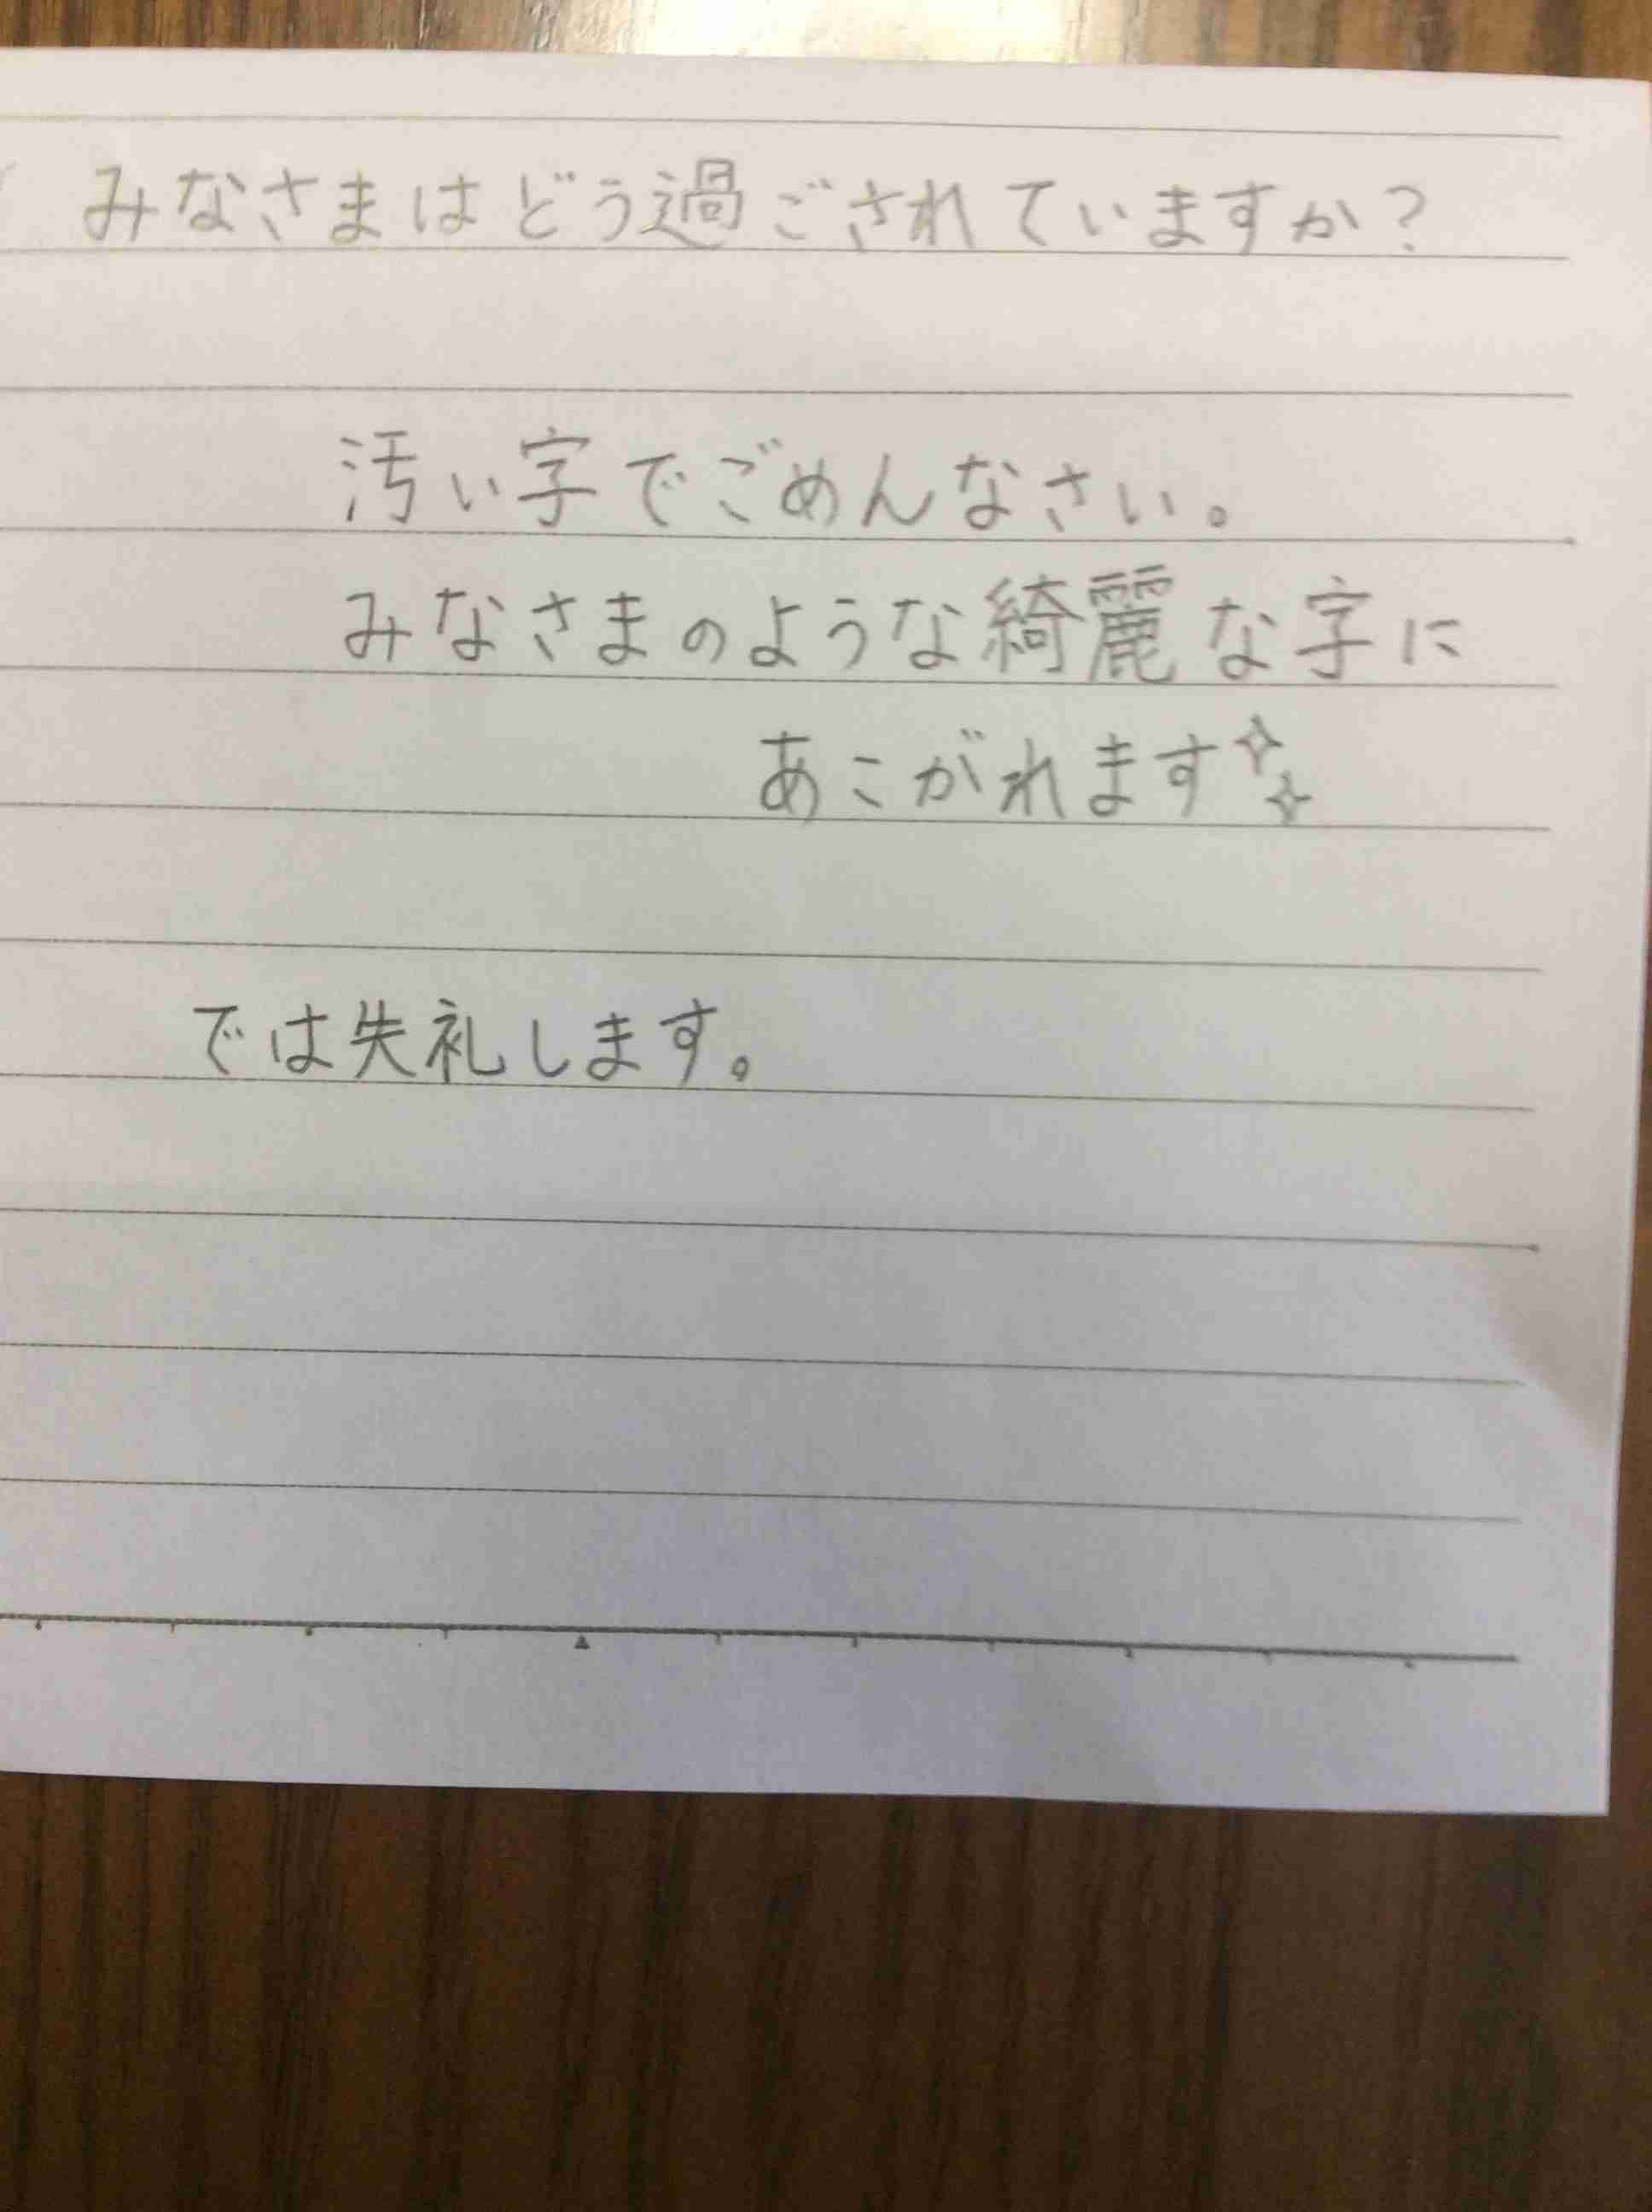 みなさまはどう過ごされていますか？
汚い字でごめんなさい。
みなさまのような綺麗な字に
あこがれます✨
では失礼します。